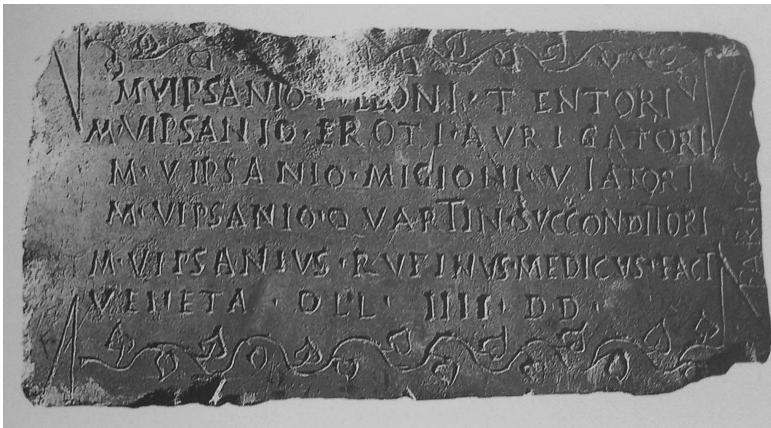 M·VIPSANIO · TENTORI
M·VIPSANIO·EROTI·AVRIGATORI
M·VIPSANIO·MIGIONI·VIATORI
M·VIPSANIO·QVARTIN·SVCCONDITORI
M·VIPSANIVS·RVFINVS·MEDICVS·FACT
VENETA · OLL · IIII · D D ·